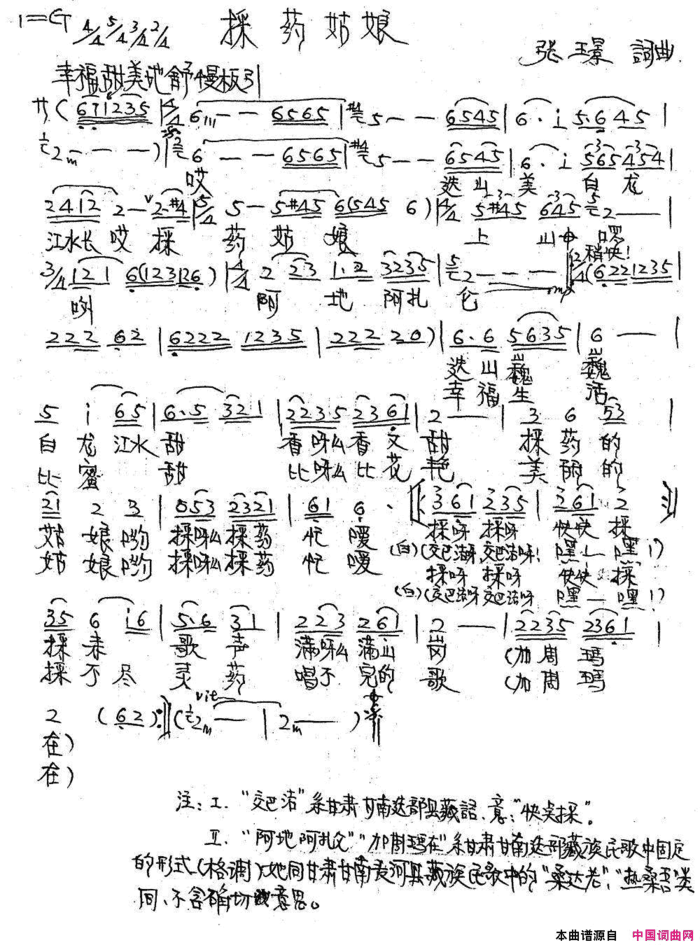 1=G 4/4 5/4 3/4 2/4 採药姑娘 张玉景 詞曲
幸福甜美地 舒慢板引
廾( 671235 | 6 — — 6565 | 5 — — 6545 | 6· i 5645 |
2 — — —) | 6 — — 6565 | 5 — — 6545 | 6· i 565 454 |
哎 迭山美 白龙
2412 2— 2#4 | 5/4 5— 5#45 6(545 6) | 4/4 5#45 645 2 —— |
江水长 哎 採 药 姑 娘 上 山中 啰
3/4 121 6(123126) | 4/4 2 223 1·2 3235 | 2 — — — | 稍快! 2/4 (6221235 |
哟 阿 地 阿扎 仑 mp
222 62 | 6222 1235 | 222 20) | 6·6 5635 | 6 —— |
迭山巍 巍
幸福生 活
5 i 65 | 6·5 321 | 2235 2361 | 2 — | 3 6 53 |
白 龙 江水 甜 香呀么香又 甜 採 药 的
比 蜜 甜 比呀么比花 艳 美 丽 的
21 2 3 | 053 2321 | 61 6· | 361 235 | 361 2 |
姑 娘 哟 採呀么採药 忙 嗳 採呀 採呀 快快 採
姑 娘 哟 採呀么採药 忙 嗳 (白)(交巴洁呀 交巴洁呀! 嘿 — 嘿!)
採呀 採呀 快快 採
(白)(交巴洁呀 交巴洁呀 嘿 — 嘿!)
35 6 i6 | 5·6 31 | 223 261 | 2 — | 2235 2361 |
採 来 歌 声 满呀么满山 岗 (加周 玛
採 不 尽 灵 药 唱不 完的 歌 (加周 玛
2 (62) :| (2 — | 2 — )
在)
在)
注: I. “交巴洁”系甘肃甘南迭部县藏語,意:“快点採”。
II. “阿地阿扎仑”“加周玛在”系甘肃甘南迭部藏族民歌中固定
的形式(格调)她同甘肃甘南夏河县藏族民歌中的“桑达老”、“热桑吾”类
同,不含确切的意思。
本曲谱源自 中国词曲网